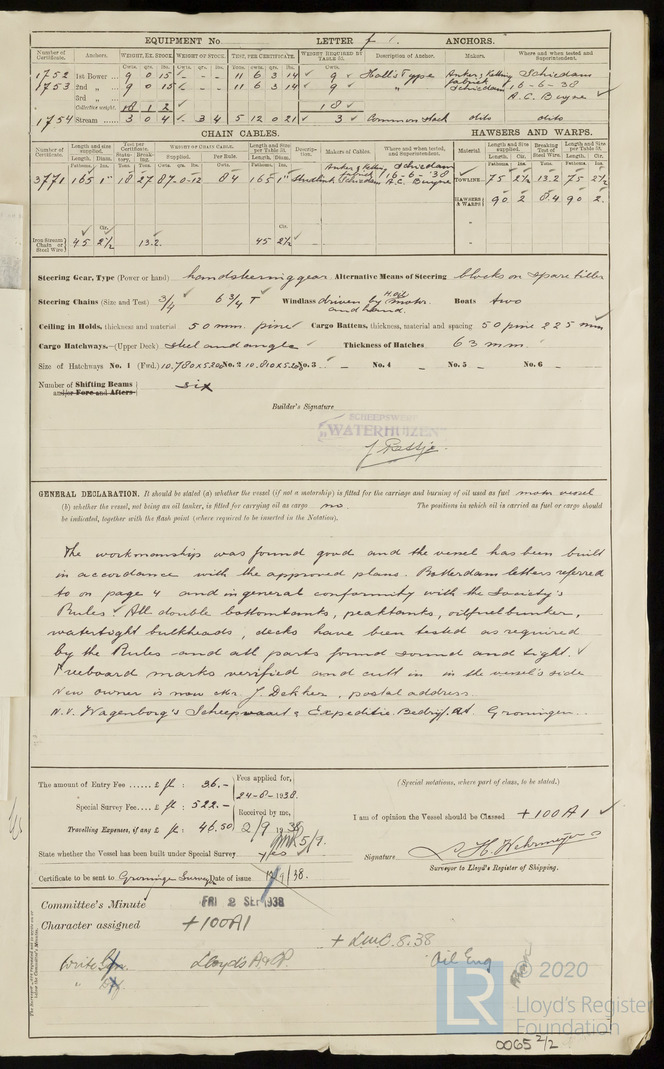 EQUIPMENT No. LETTER f ANCHORS.
Number of Certificate. Anchors. WEIGHT, EX. STOCK. WEIGHT OF STOCK. TEST, PER CERTIFICATE. WEIGHT REQUIRED BY TABLE 31. Description of Anchor. Makers. Where and when tested and Superintendent.
1752 1st Bower ... 9 0 15 - - - 11 6 3 14 9 Hall's Type Schiedam
1753 2nd „ 9 0 15 - - - 11 6 3 14 9 „ Schiedam 16-6-38
3rd „ A.C. Buyne
Collective weight. 18 1 2 18
1754 Stream ... 3 0 4 - 3 4 5 12 0 21 3 Common stock dito dito
CHAIN CABLES. HAWSERS AND WARPS.
Number of Certificate. Length and size supplied. Test per Certificate. WEIGHT OF CHAIN CABLE. Length and size per Table 31. Description. Makers of Cables. Where and when tested, and Superintendent. Material Length and size supplied. Breaking Test of Steel Wire. Length and size per Table 31.
3771 165 1" 18 27 87-0-12 84 165 1" Studlink Schiedam 16-6-'38 A.C. Buyne TOWLINE 75 2½ 13.2 75 2½
HAWSERS & WARPS 90 2 8.4 90 2.
Iron Stream Chain or Steel Wire 45 2½ 13.2. 45 2½
Steering Gear, Type (Power or hand) handsteeringgear Alternative Means of Steering blocks on spare tiller
Steering Chains (Size and Test) 3/4 6 3/4 T Windlass driven by H.oil motor and hand. Boats two
Ceiling in Holds, thickness and material 50 mm. pine Cargo Battens, thickness, material and spacing 50 pine 225 mm
Cargo Hatchways.—(Upper Deck) steel and angle Thickness of Hatches 63 mm.
Size of Hatchways No. 1 (Fwd.) 10.780 x 5.200 No. 2 10.810 x 5.200 No. 3 - No. 4 - No. 5 - No. 6 -
Number of Shifting Beams and/or Fore and Afters six
Builder's Signature
SCHEEPSWERF
„WATERHUIZEN"
GENERAL DECLARATION. It should be stated (a) whether the vessel (if not a motorship) is fitted for the carriage and burning of oil used as fuel motor vessel
(b) whether the vessel, not being an oil tanker, is fitted for carrying oil as cargo no. The positions in which oil is carried as fuel or cargo should
be indicated, together with the flash point (where required to be inserted in the Notation).
The workmanship was found good and the vessel has been built
in accordance with the approved plans. Rotterdam letters referred
to on page 4 and in general conformity with the Society's
Rules. All double bottomtanks, peaktanks, oilfuelbunker,
watertight bulkheads, decks have been tested as required
by the Rules and all parts found sound and tight.
Freeboard marks verified and cutt in in the vessel's side
New owner is now Mr. J. Dekker, postal address
N.V. Wagenborg's Scheepvaart & Expeditie Bedrijf. At Groningen.
The amount of Entry Fee ...... £ fl : 36.- Fees applied for, 24-8-1938.
(Special notations, where part of class, to be stated.)
Special Survey Fee .... £ fl : 522.- Received by me,
I am of opinion the Vessel should be Classed +100A1
Travelling Expenses, if any £ fl : 46.50 2/9 1938 5/9.
State whether the Vessel has been built under Special Survey yes Signature
Surveyor to Lloyd's Register of Shipping.
Certificate to be sent to Groningen Surveyor Date of issue 12/9/38.
Committee's Minute FRI 2 SEP 1938
Character assigned +100A1
+ LMC. 8.38
Write Lloyds A & P. Oil Eng
© 2020
LR
Lloyd's Register
Foundation
0065 2/2